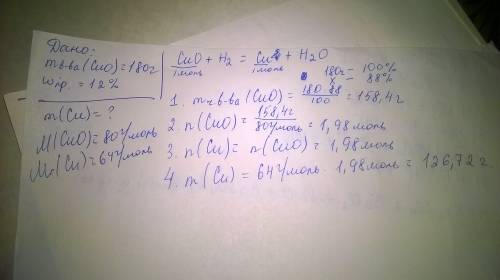 Дано:
m в-ва (CuO) = 180г
w пр. = 12%
m(Cu) = ?
M(CuO) = 80г/моль
Mr(Cu) = 64г/моль
CuO + H₂ = Cu + H₂O
1моль 1моль
180г — 100%
x — 88%
1. m ч в-ва (CuO) = 180·88/100 = 158,4г
2. n(CuO) = 158,4г/80г/моль = 1,98моль
3. n(Cu) = n(CuO) = 1,98моль
4. m(Cu) = 64г/моль · 1,98моль = 126,72г